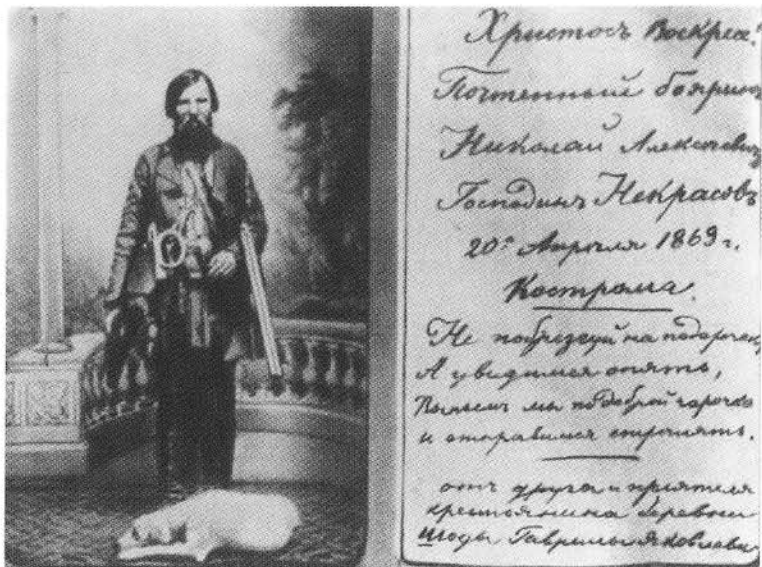 Христосъ Воскресе!
Почтенный бояринъ
Николай Алексеевичъ
Господинъ Некрасовъ
20го Апреля 1869 г.
Кострома.
Не побрезгуй на подарочке,
А увидимся опять,
Выпьем мы по доброй чарочке
и отправимся стрелять.
отъ друга и приятеля
крестьянина деревни
Шоды Гаврилы Яковлева